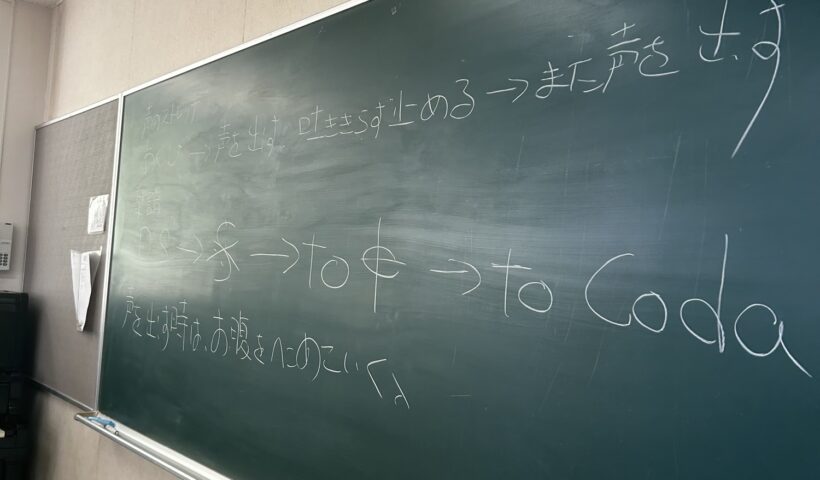 →声を出す 吐ききらず止める→また声を出す
D.S→𝄋→to𝄌→to Coda
声を出す時は、お腹をへこめていく